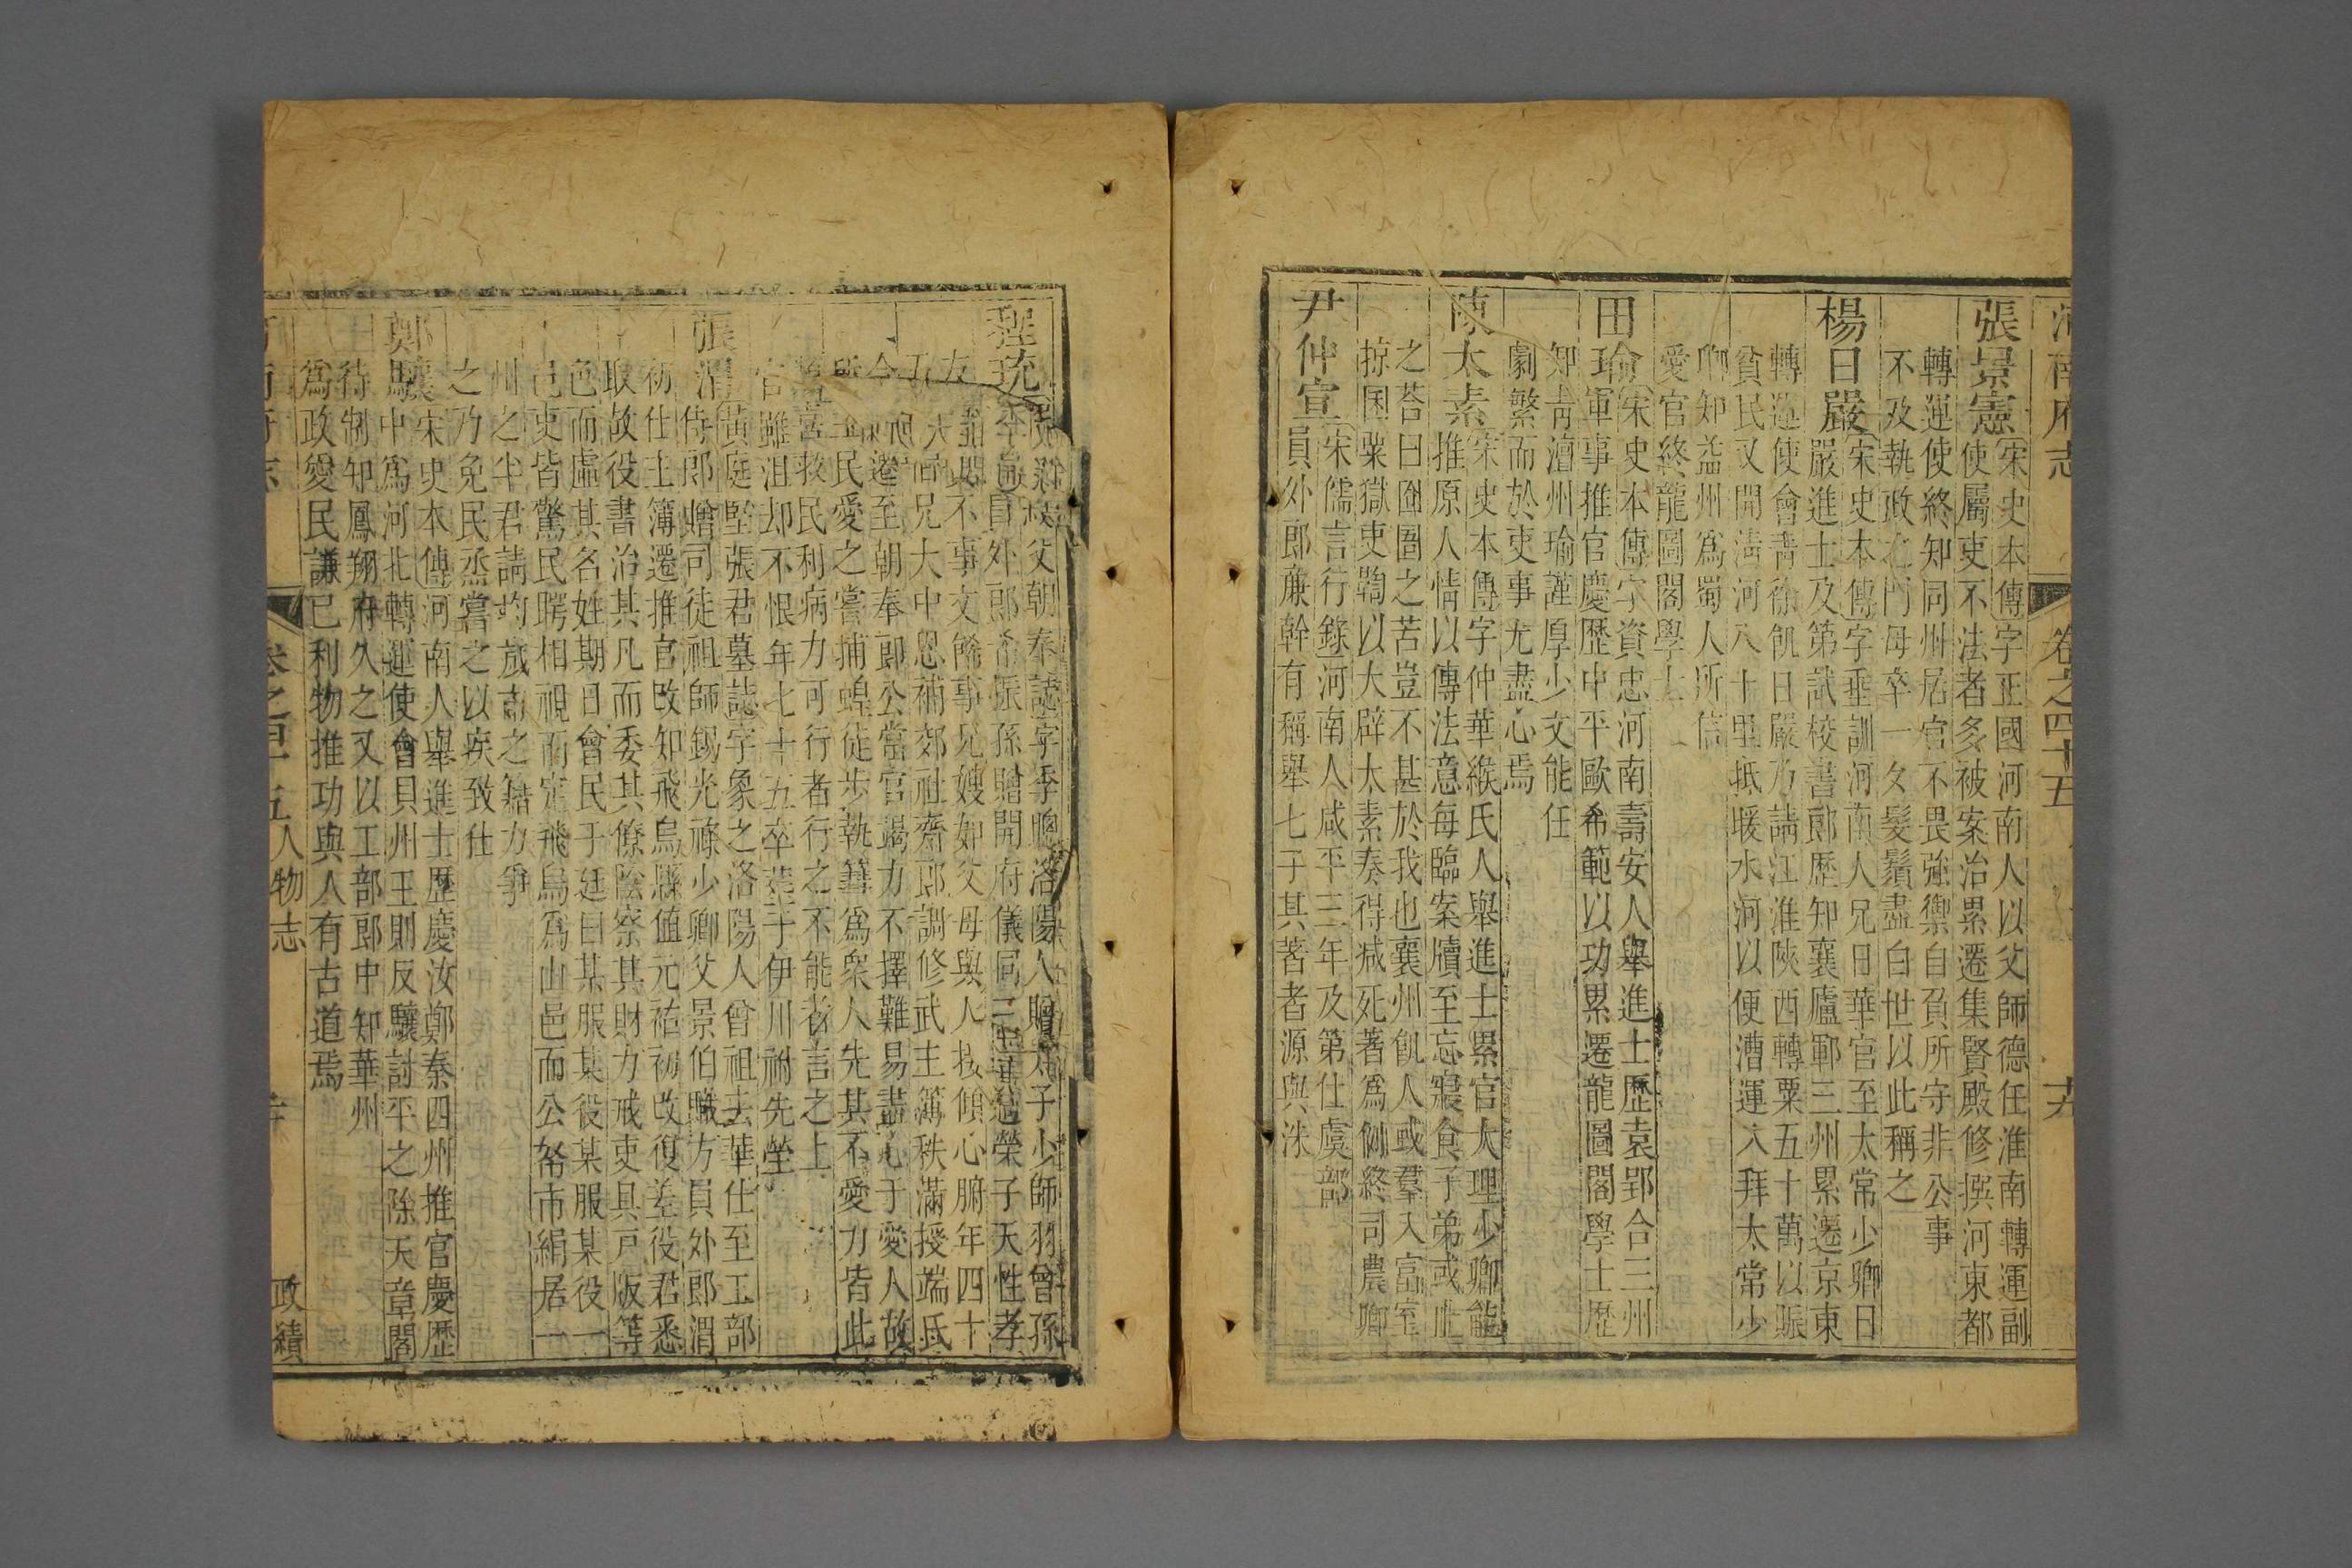 河南府志
卷之四十五
張景憲宋史本傳字正國河南人以父師德任淮南轉運副
使屬吏不法者多被案治累遷集賢殿修撰河東都
轉運使終知同州居官不畏強禦自負所守非公事
不及執政之門母卒一夕髮鬚盡白世以此稱之
楊日嚴宋史本傳字垂訓河南人兄日華官至太常少卿日
嚴進士及第試校書郎歷知襄廬鄆三州累遷京東
轉運使會青徐飢日嚴乃請江淮陝西轉粟五十萬以賑
貧民又開淸河八十里抵暖水河以便漕運入拜太常少
卿知益州爲蜀人所信
愛官終龍圖閣學士
田瑜宋史本傳字資忠河南壽安人舉進士歷袁郢合三州
軍事推官慶歷中平歐希範以功累遷龍圖閣學士歷
知靑澶州瑜謹厚少文能任
劇繁而於吏事尤盡心焉
陳太素宋史本傳字仲華緱氏人舉進士累官大理少卿能
推原人情以傳法意每臨案牘至忘寢食子弟或止
之荅曰囹圄之苦豈不甚於我也襄州飢人或羣入富室
掠囷粟獄吏鞫以大辟太素奏得减死著爲例終司農卿
尹仲宣宋儒言行錄河南人咸平三年及第仕虞部
員外郎廉幹有稱舉七子其著者源與洙
程琉父朝奉誌字季聰洛陽人贈太子少師羽曾孫
員外郎希振孫贈開府儀同三司遹榮子天性孝
不事文餙事兄嫂如父母與人接傾心腑年四十
五兄大中恩補郊社齋郎調修武主簿秩滿授端氏
令遷至朝奉郎公當官竭力不擇難易盡心于愛人故
所至民愛之嘗捕蝗徒步執篲爲衆人先其不愛力皆此
善救民利病力可行者行之不能者言之上
官雖沮却不恨年七十五卒塟于伊川祔先塋
張渭黃庭堅張君墓誌字象之洛陽人曾祖去華仕至工部
侍郎贈司徒祖師錫光祿少卿父景伯職方員外郎渭
初仕主簿遷推官改知飛烏縣値元祐初改復差役君悉
取故役書治其凡而委其僚陰察其財力戒吏具戸版等
色而虛其名姓期日會民于廷曰某服某役某服某役一
邑吏皆驚民睜相視而定飛烏爲山邑而公帑市絹居一
州之半君請均茂甫之鄰力爭
之乃免民烝嘗之以疾致仕
鄭驤宋史本傳河南人舉進士歷慶汝鄭秦四州推官慶歷
中爲河北轉運使會貝州王則反驤討平之除天章閣
待制知鳳翔府久之又以工部郎中知華州
爲政愛民謙已利物推功與人有古道焉
卷之四十五人物志
政績